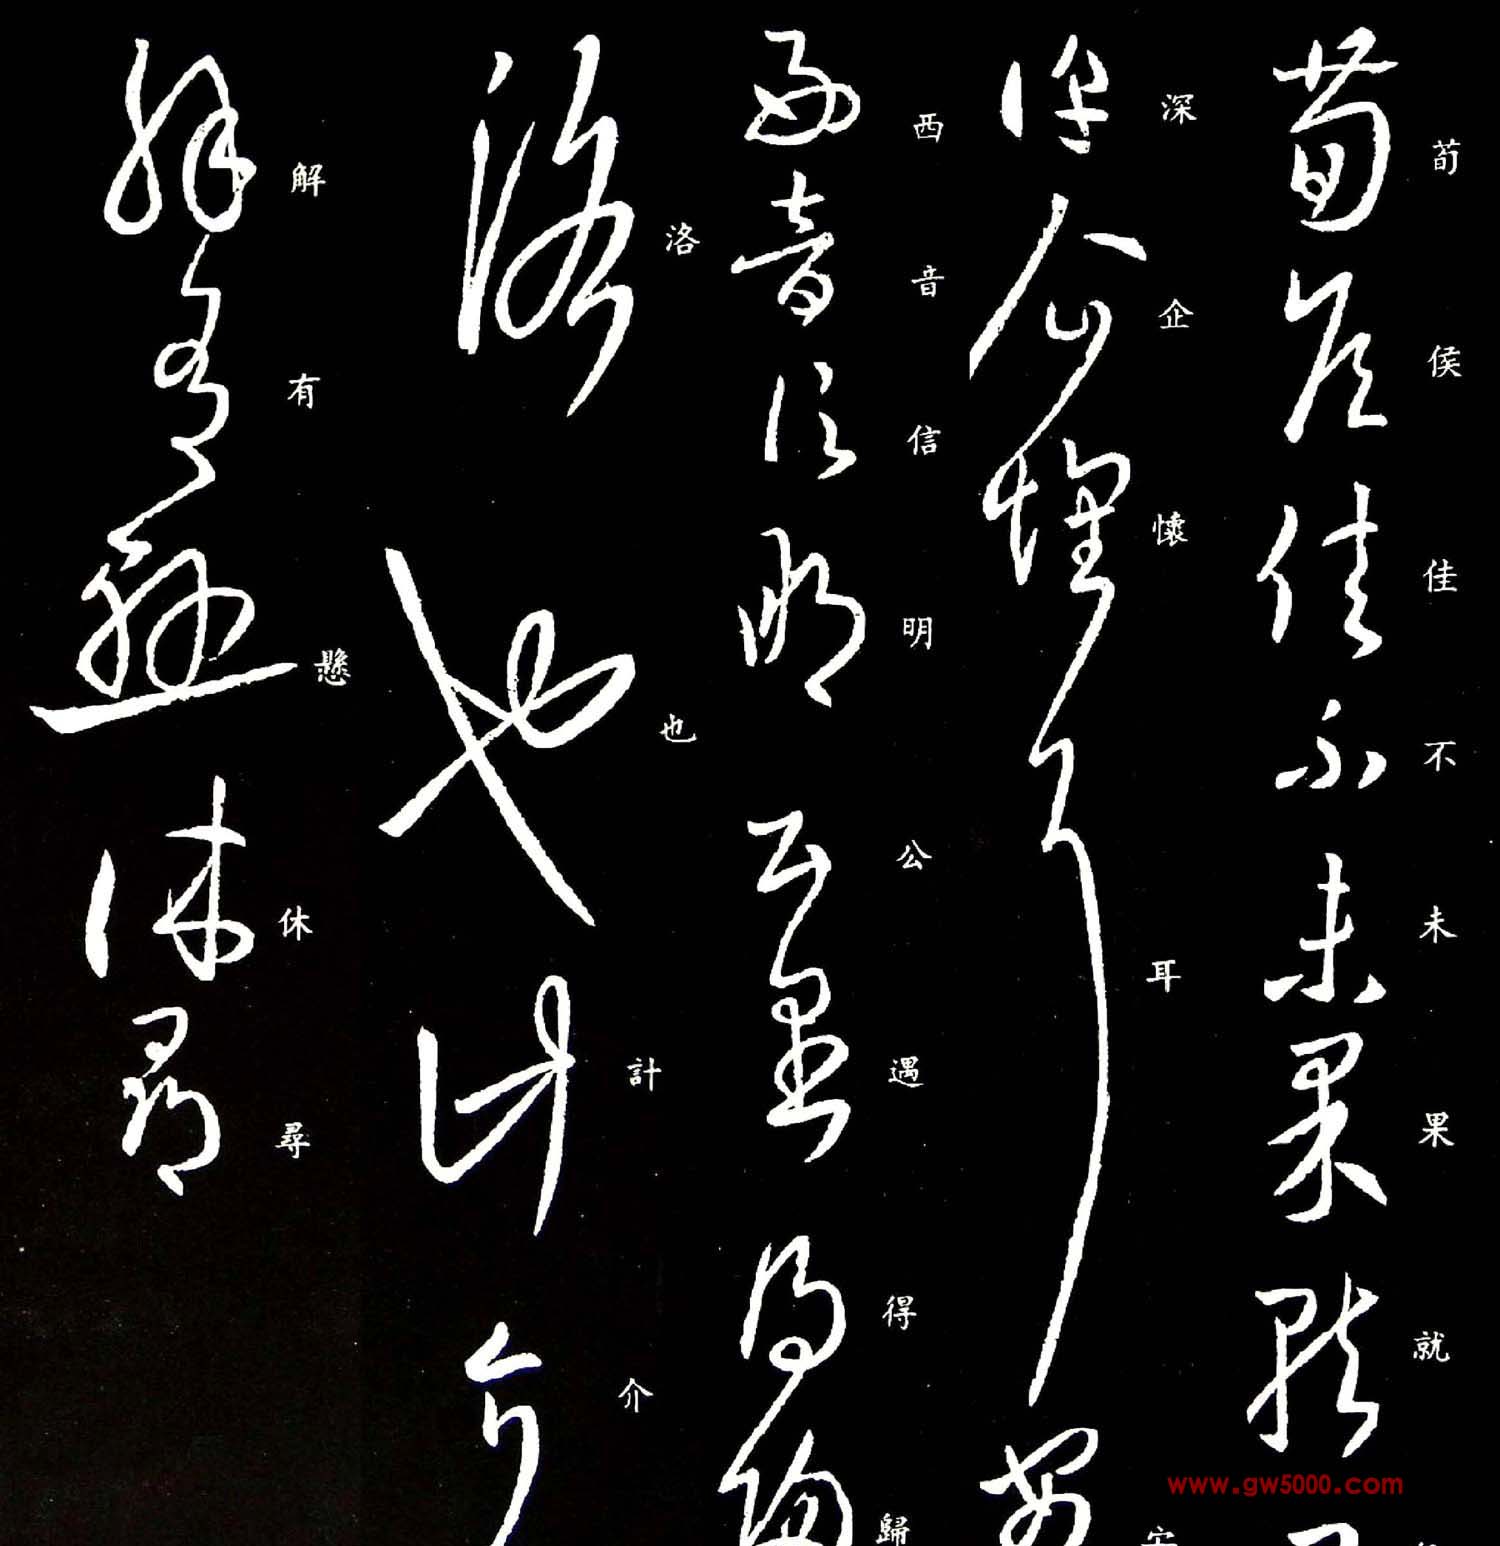 荀侯佳不未果就
深企懷耳安
西音信明公遇得歸
洛也計介
解有懸休尋
www.gw5000.com